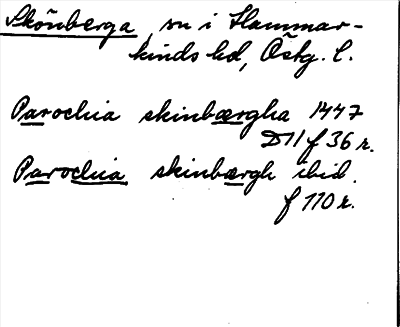 Skönberga, sn i Hammar-
kinds hd, Östg. l.
Parochia skinbærgha 1447
D11 f 36 r.
Parochia skinbærgh ibid.
f 110 r.